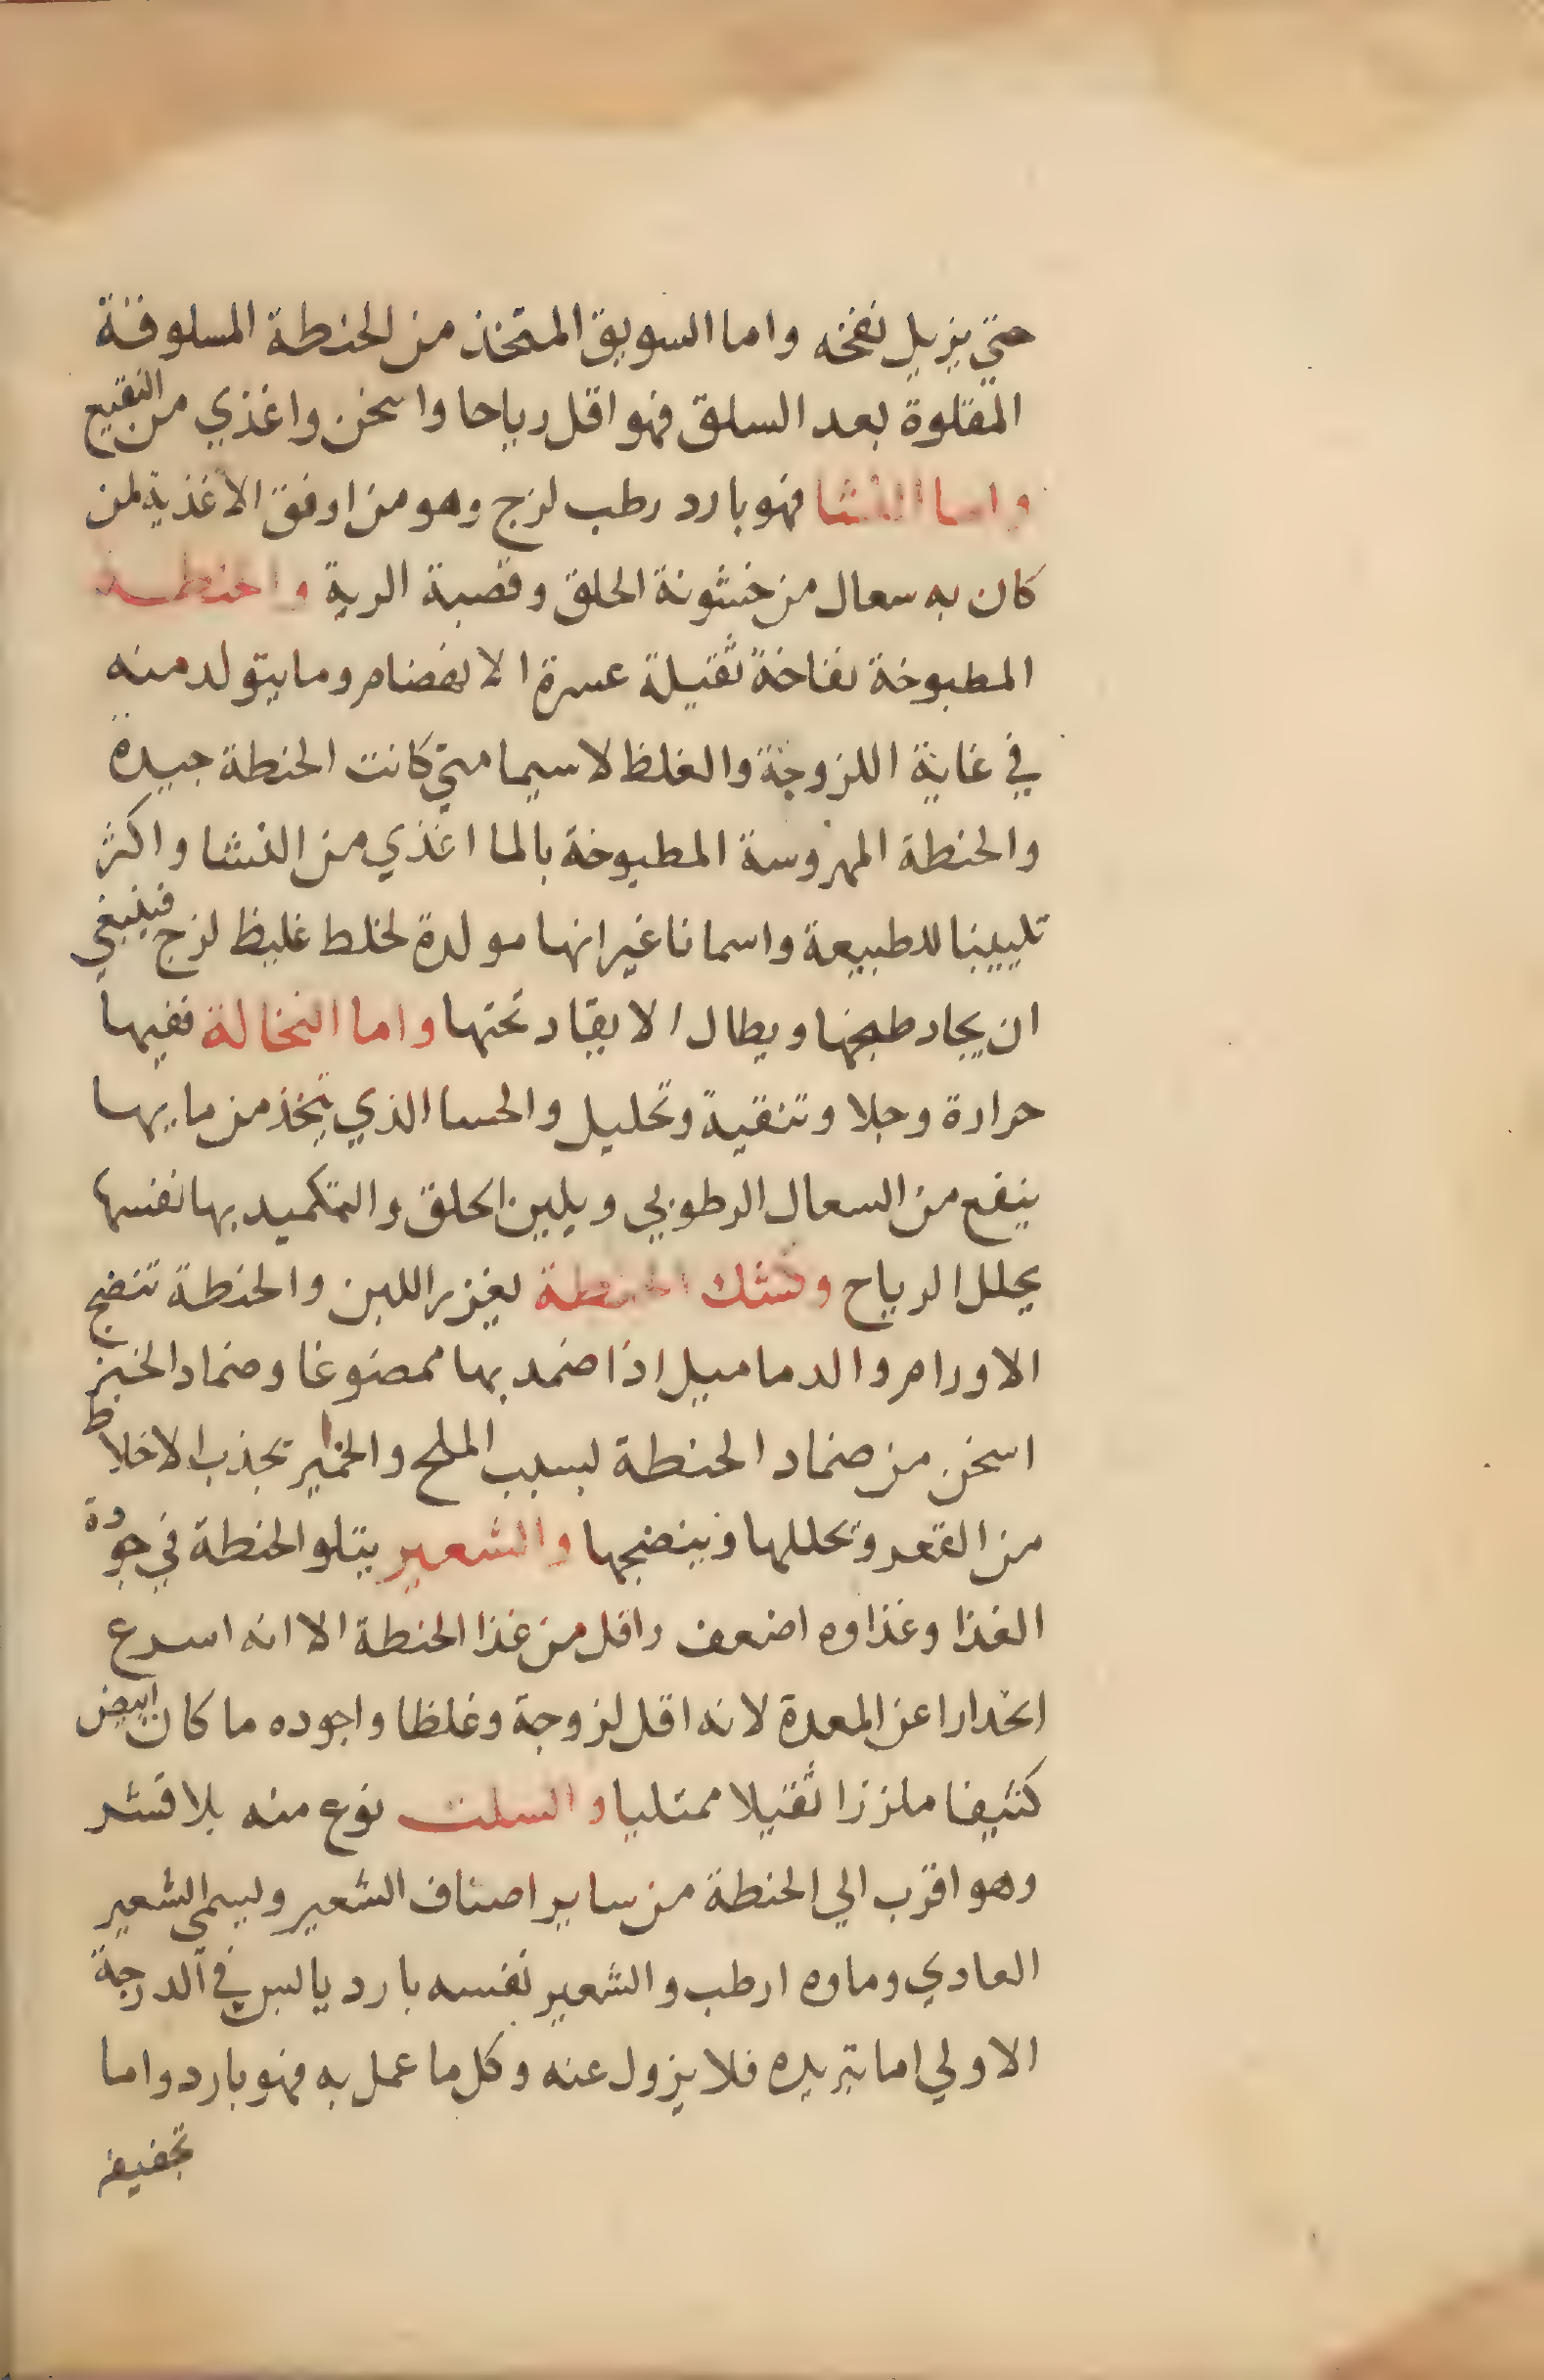 حتي يزيل نفخه واما السويق المتخذ من الحنطة المسلوقة
المقلوة بعد السلق فهو اقل رياحا واسخن واغذي من النقيع
واما النشا فهو بارد رطب لزج وهو من اوفق الاغذية لمن
كان به سعال من خشونة الحلق وقصبة الرية والحنطة
المطبوخة نفاخة ثقيلة عسرة الانهضام وما يتولد منه
في غاية اللزوجة والغلظ لا سيما متي كانت الحنطة جيدة
والحنطة المهروسة المطبوخة بالما اغذي من النشا واكثر
تليينا للطبيعة واسمانا غير انها مولدة لخلط غليظ لزج فينبغي
ان يجاد طبخها ويطال الايقاد تحتها واما النخالة ففيها
حرارة وجلا وتنقية وتحليل والحسا الذي يتخذ من مايها
ينفع من السعال الرطوبي ويلين الحلق والتكميد بها نفسها
يحلل الرياح وكشك الحنطة يغزر اللبن والحنطة تنضج
الاورام والدماميل اذا ضمد بها ممضوغا وضماد الخبز
اسخن من ضماد الحنطة بسبب الملح والخمير تجذب الاخلاط
من القعر وتحللها وينضجها والشعير يتلو الحنطة في جودة
الغذا وغذاوه اضعف واقل من غذا الحنطة الا انه اسرع
انحدارا عن المعدة لانه اقل لزوجة وغلظا واجوده ما كان ابيض
كثيفا ملززا ثقيلا ممتليا والسلت نوع منه بلا قشر
وهو اقرب الي الحنطة من ساير اصناف الشعير ويسمي الشعير
العادي وماوه ارطب والشعير نفسه بارد يابس في الدرجة
الاولي اما تبريده فلا يزول عنه وكل ما عمل به فهو بارد واما
تجفيفه